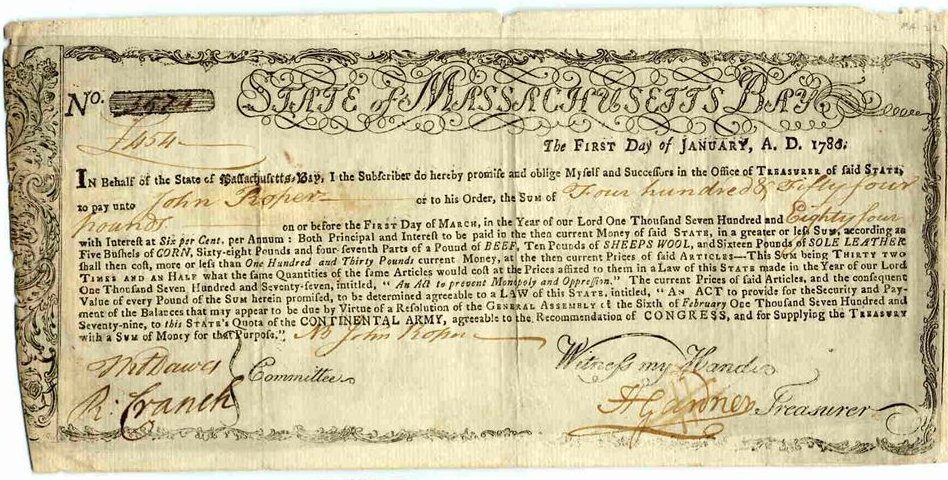 No. 
STATE of MASSACHUSETTS BAY
£454
The FIRST Day of JANUARY, A. D. 1780.
IN Behalf of the State of Massachusetts-Bay, I the Subscriber do hereby promise and oblige Myself and Successors in the Office of TREASURER of said STATE,
to pay unto John Roper or to his Order, the SUM of Four hundred & Fifty four
pounds on or before the FIRST Day of MARCH, in the Year of our Lord One Thousand Seven Hundred and Eighty four
with Interest at Six per Cent. per Annum : Both Principal and Interest to be paid in the then current Money of said STATE, in a greater or less SUM, according as
Five Bushels of CORN, Sixty-eight Pounds and four seventh Parts of a Pound of BEEF, Ten Pounds of SHEEPS WOOL, and Sixteen Pounds of SOLE LEATHER
shall then cost, more or less than One Hundred and Thirty Pounds current Money, at the then current Prices of said ARTICLES—This SUM being THIRTY TWO
TIMES AND AN HALF what the same Quantities of the same Articles would cost at the Prices affixed to them in a Law of this STATE made in the Year of our Lord
One Thousand Seven Hundred and Seventy-seven, intitled, " An Act to prevent Monopoly and Oppression." The current Prices of said Articles, and the consequent
Value of every Pound of the SUM herein promised, to be determined agreeable to a LAW of this STATE, intitled, " AN ACT to provide for the Security and Pay-
ment of the Balances that may appear to be due by Virtue of a Resolution of the GENERAL ASSEMBLY of the Sixth of February One Thousand Seven Hundred and
Seventy-nine, to this STATE'S Quota of the CONTINENTAL ARMY, agreeable to the Recommendation of CONGRESS, and for Supplying the TREASURY
with a SUM of Money for that Purpose." John Roper
Witness my Hand
Committee
R: Cranch
H Gardner Treasurer